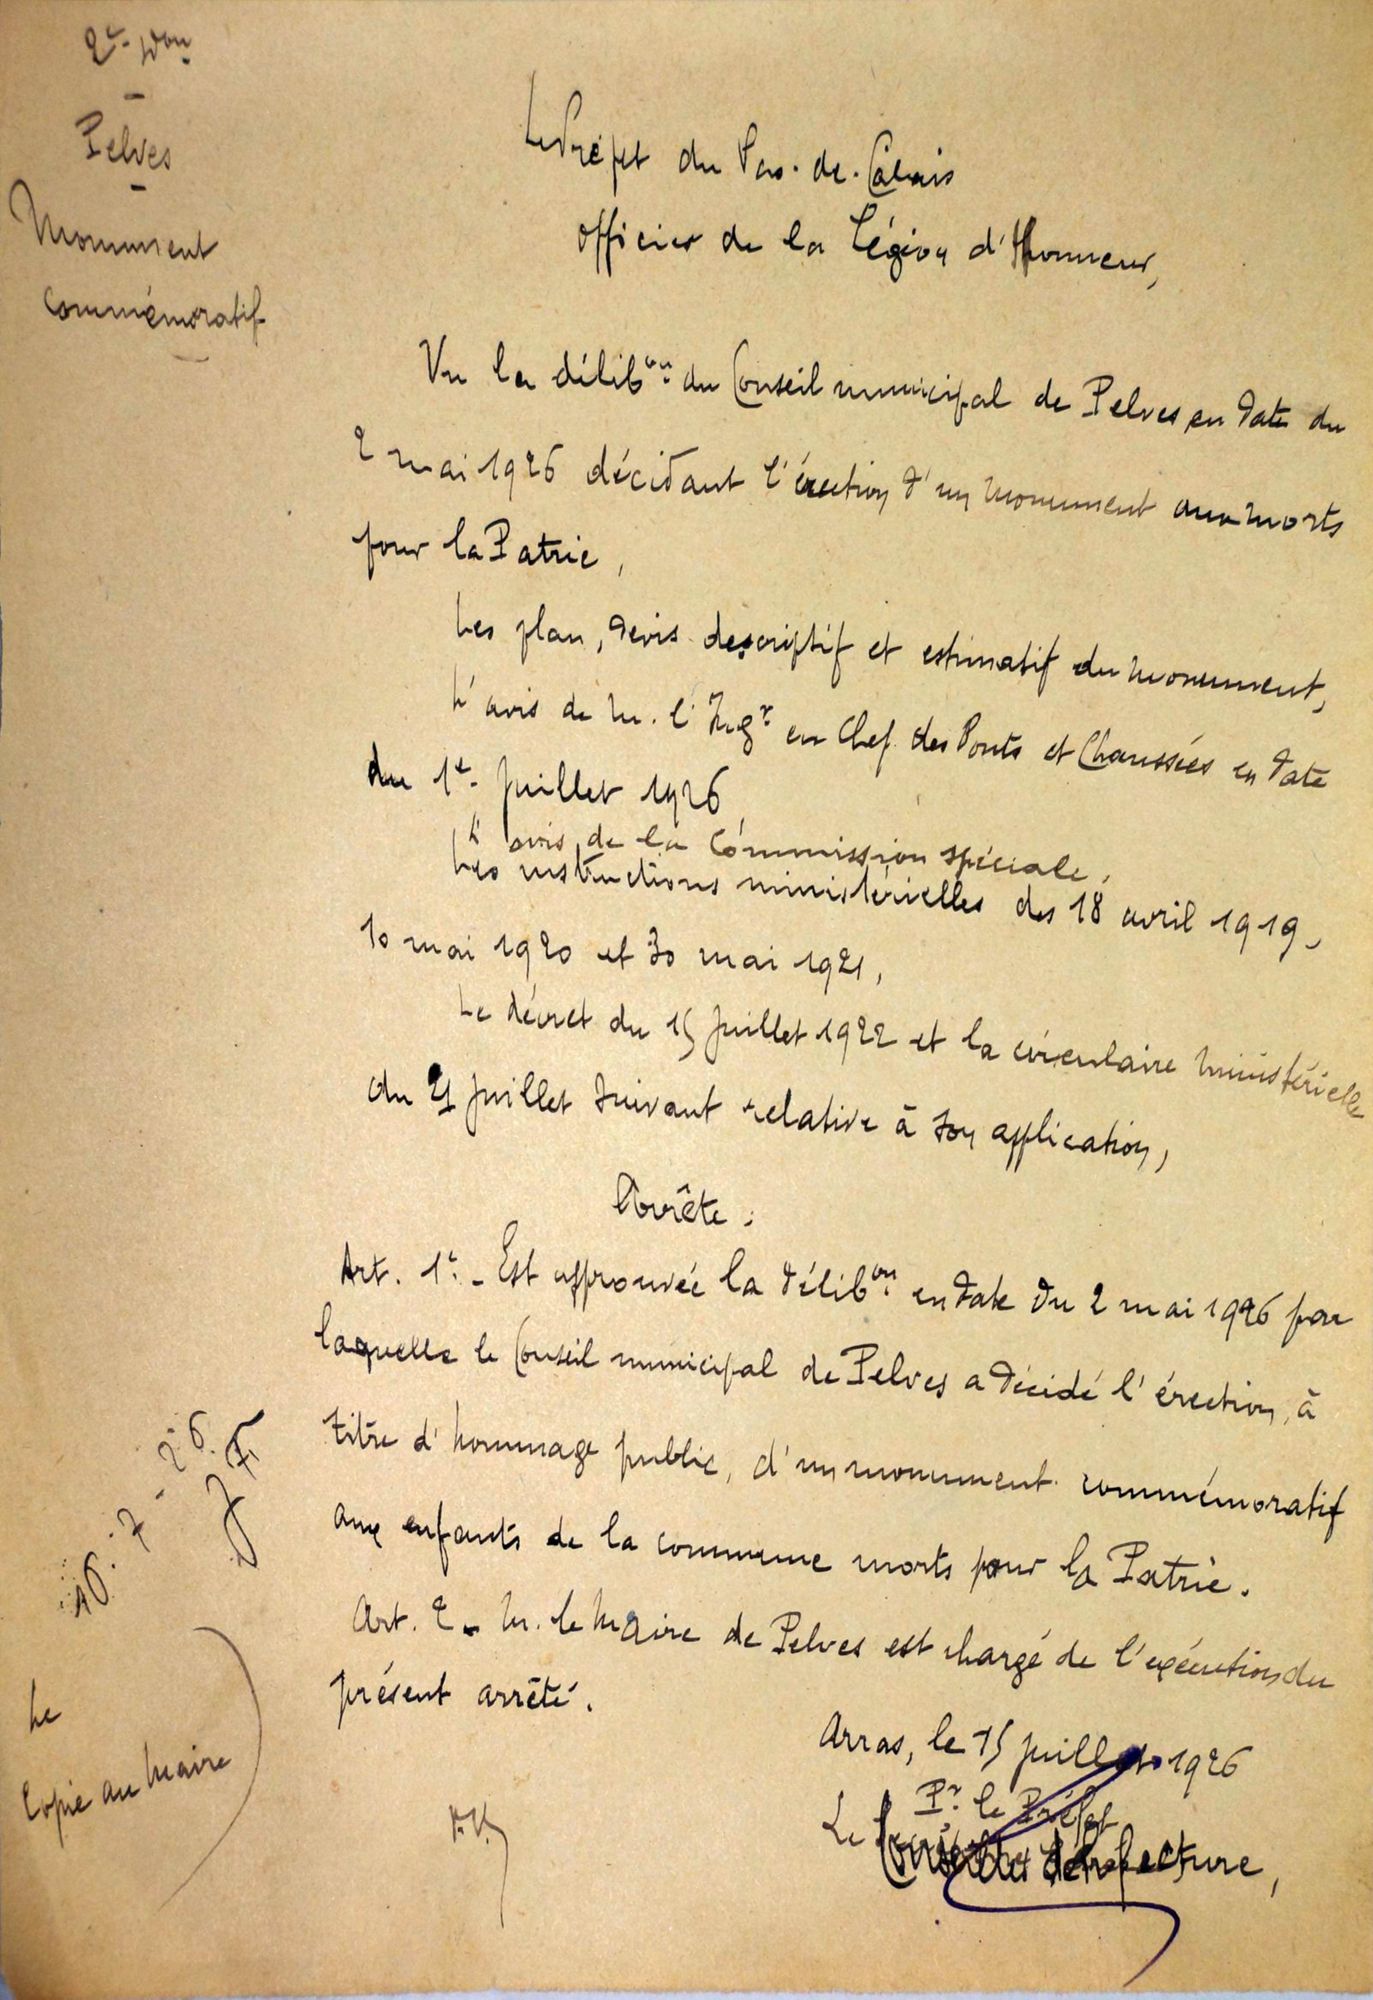 2e Don
Pelves
Monument
commémoratif
Le Préfet du Pas-de-Calais
officier de la Légion d'Honneur,
Vu la délibon du Conseil municipal de Pelves en date du
2 mai 1926 décidant l'érection d'un monument aux morts
pour la Patrie,
Les plan, devis descriptif et estimatif du monument,
L'avis de M. l'Ingr en Chef des Ponts et Chaussées en date
du 1er juillet 1926
L'avis de la Commission spéciale,
Les instructions ministérielles des 18 avril 1919,
10 mai 1920 et 30 mai 1921,
Le décret du 15 juillet 1922 et la circulaire ministérielle
du juillet suivant relative à son application,
Arrête :
Art. 1er - Est approuvée la délibon en date du 2 mai 1926 par
laquelle le Conseil municipal de Pelves a décidé l'érection, à
titre d'hommage public, d'un monument commémoratif
aux enfants de la commune morts pour la Patrie.
Art. 2 - M. le Maire de Pelves est chargé de l'exécution du
présent arrêté.
16-7-26
Le
Copie au Maire
Arras, le 15 juillet 1926
Pr le Préfet
Le Conseiller de Préfecture,